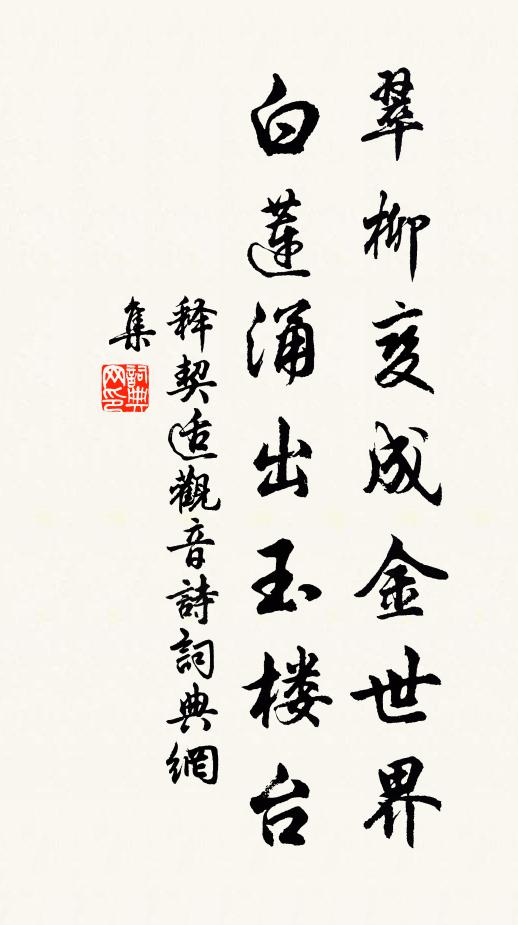 翠柳变成金世界
白莲涌出玉楼台
释契适觀音詩詞典網
集
詞典网印